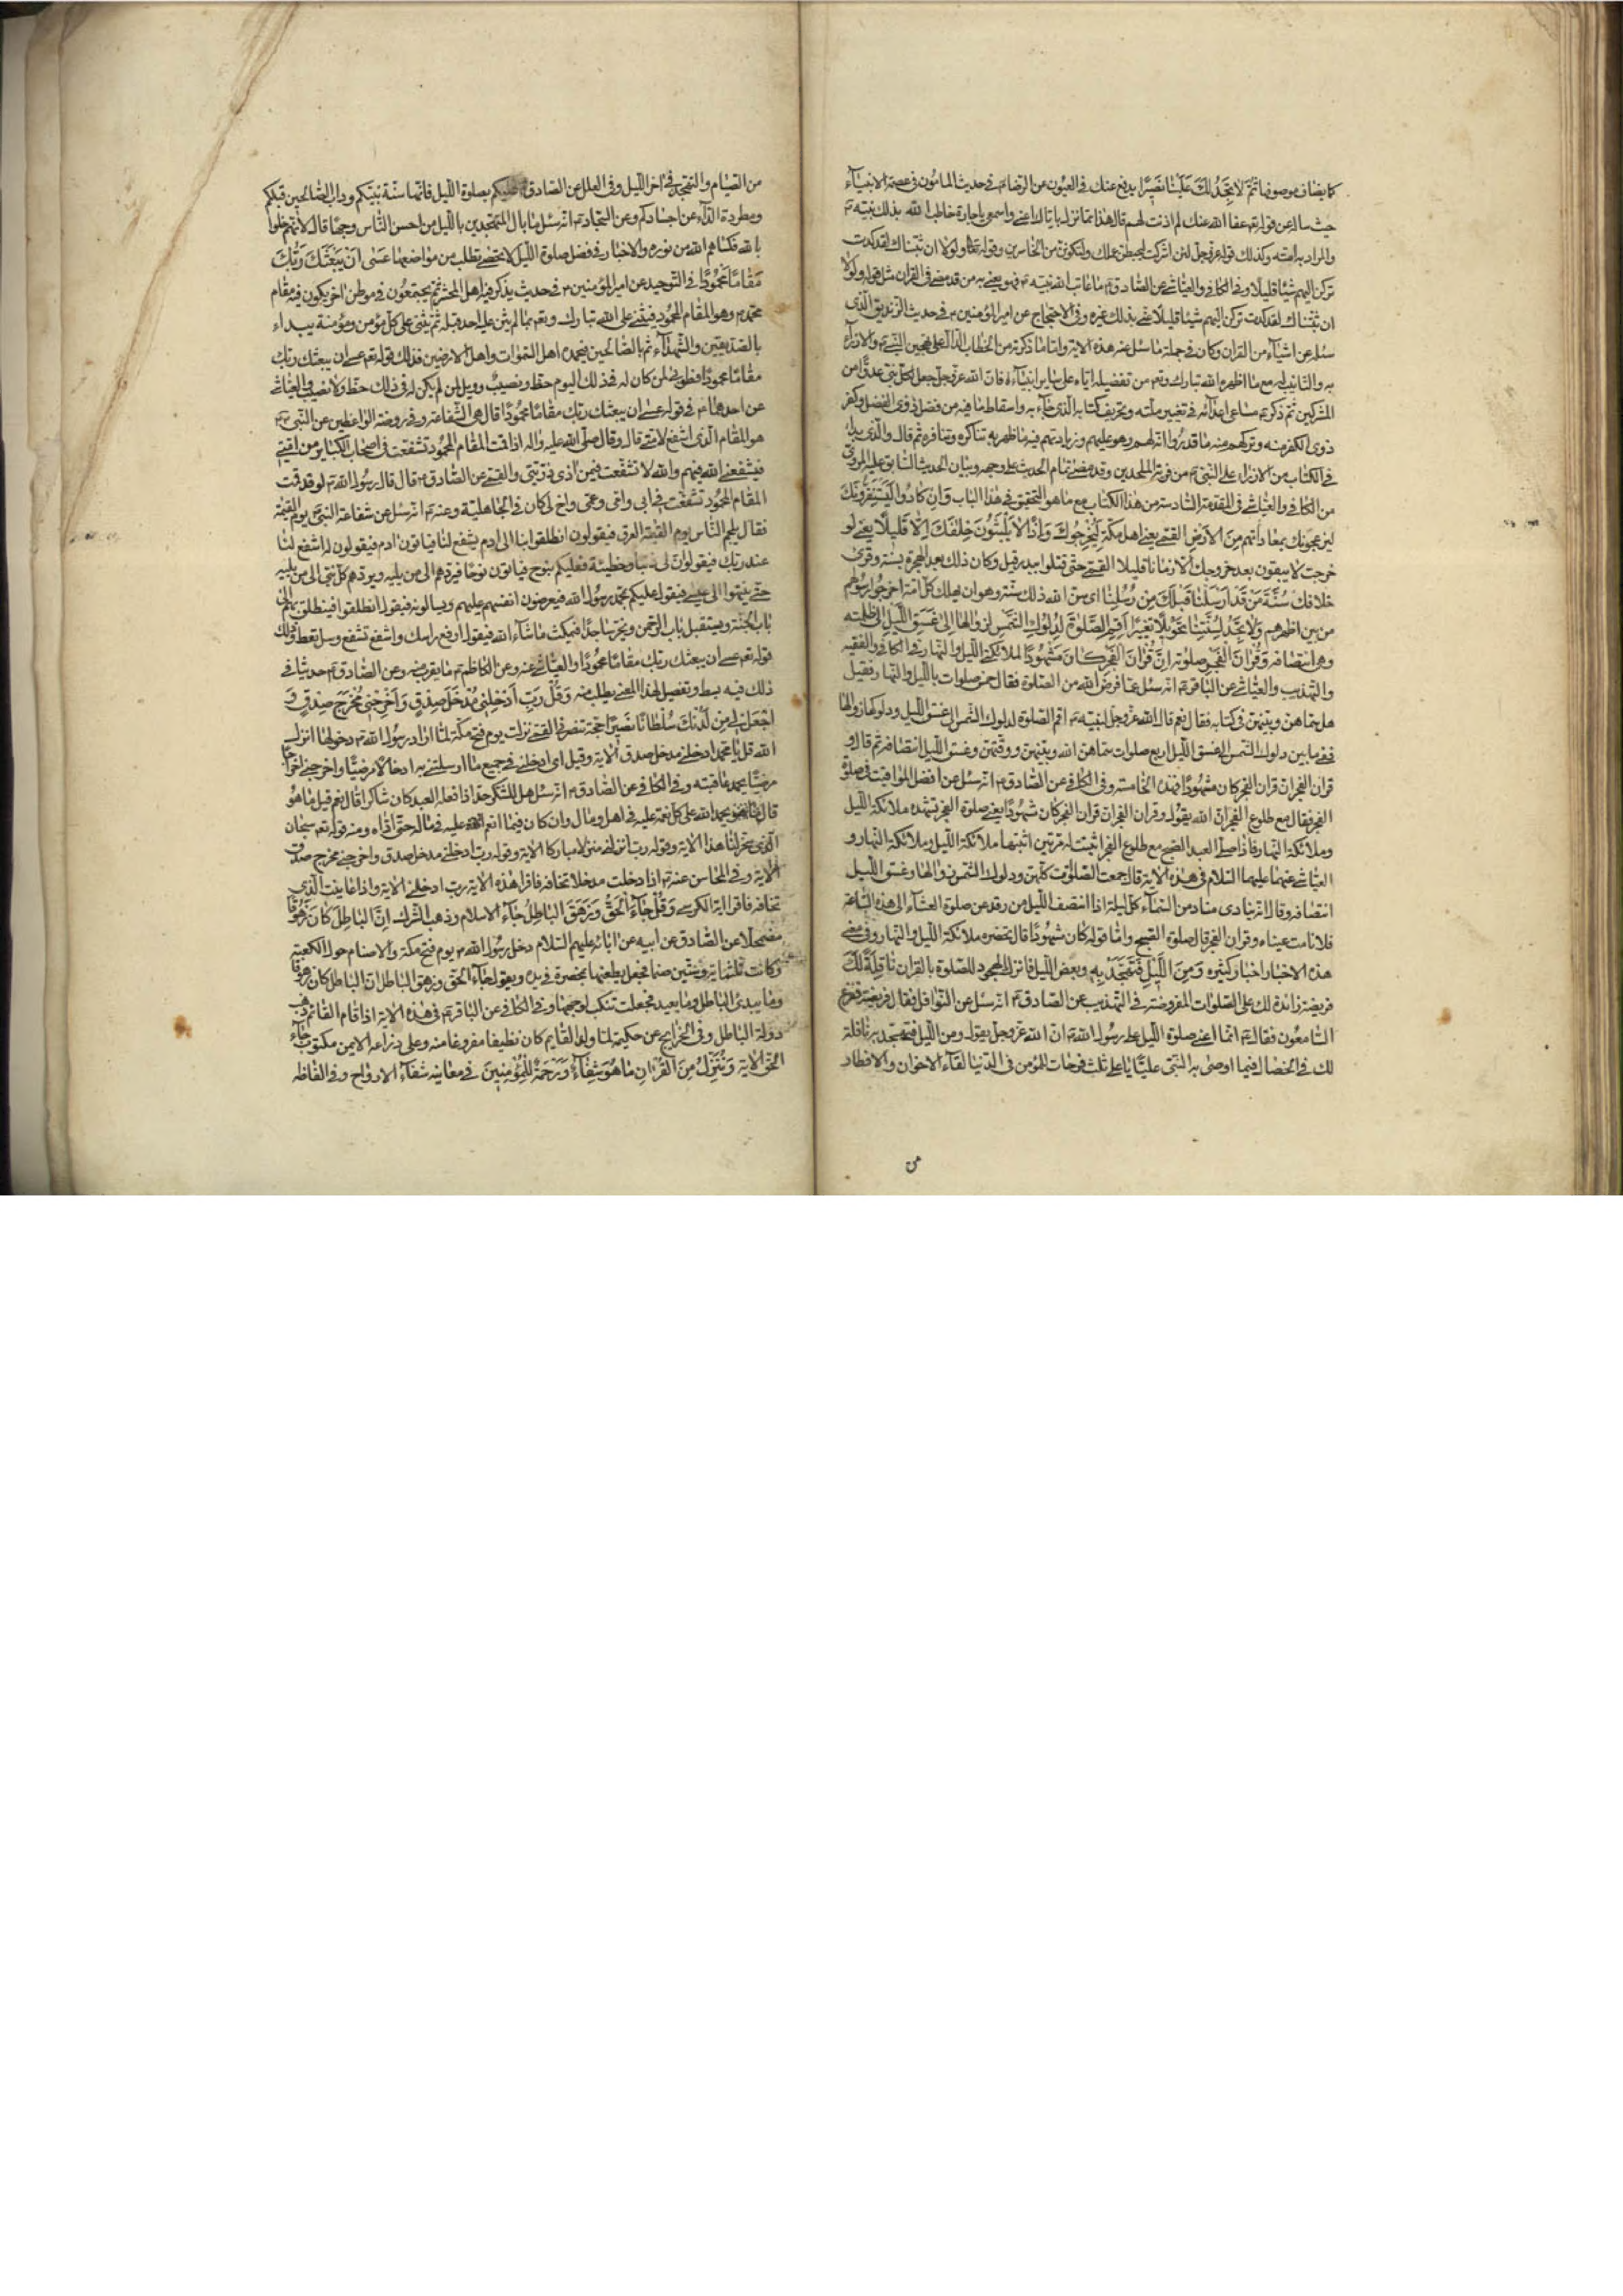 كما يضاف موصوفها ثُمَّ لا تَجِدُ لَكَ عَلَيْنا نَصيرًا يدفع عنك في العيون عن الرضا ع في حديث المأمون في عصمة الانبياء
حيث ساله عن قوله تعم عفا الله عنك لم اذنت لهم قال هذا مما نزل باياك اعني واسمعي يا جارة خاطب الله بذلك نبيه ص
والمراد به امته وكذلك قوله عز وجل لئن اشركت ليحبطن عملك ولتكونن من الخاسرين وقوله تعالى ولولا ان ثبتناك لقد كدت
تركن اليهم شيئا قليلا وفي الكافي والعياشي عن الصادق ع ما عاتب الله نبيه ص فهو يعني به من قد مضى في القران مثل قوله ولولا
ان ثبتناك لقد كدت تركن اليهم شيئا قليلا عني بذلك غيره وفي الاحتجاج عن امير المؤمنين ع في حديث الزنديق الذي
سئله عن اشياء من القران وكان في جملة ما سئل عنه هذه الاية واما ما ذكرته من الخطاب الدال على تهجين النبي ص والازراء
به والتانيب له مع ما اظهره الله تبارك وتعم من تفضيله اياه على ساير انبيائه فان الله عز وجل جعل لكل نبي عدوا من
المشركين ثم ذكر ع مساعي اعدائه في تغيير ملته وتحريف كتابه الذي جاء به واسقاط ما فيه من فضل ذوي الفضل وكفر
ذوي الكفر منه وتركهم منه ما قدروا انه لهم وهو عليهم وزيادتهم فيه ما ظهر به تناكره وتنافره ثم قال والذي بدا
في الكتاب من الازراء على النبي ص من فرية الملحدين وقد مضى تمام الحديث على وجهه وبيان الحديث السابق عليه المروي
من الكافي والعياشي في المقدمة السادسة من هذا الكتاب مع ما هو التحقيق في هذا الباب وَاِنْ كادُوا لَيَسْتَفِزُّونَكَ
ليزعجونك بمعاداتهم مِنَ الاَرْضِ القمي يعني اهل مكة لِيُخْرِجُوكَ وَاِذًا لا يَلْبَثُونَ خِلافَكَ اِلّا قَليلًا يعني لو
خرجت لا يبقون بعد خروجك الا زمانا قليلا القمي حتى قتلوا ببدر قيل وكان ذلك بعد الهجرة بسنة وقرئ
خلافك سُنَّةَ مَنْ قَدْ اَرْسَلْنا قَبْلَكَ مِنْ رُسُلِنا اي سن الله ذلك سنة وهو ان يهلك كل امة اخرجوا رسولهم
من بين اظهرهم وَلا تَجِدُ لِسُنَّتِنا تَحْويلًا تغييرا اَقِمِ الصَّلوةَ لِدُلُوكِ الشَّمْسِ لزوالها اِلى غَسَقِ اللَّيْلِ الى ظلمته
وهي انتصافه وَقُرْانَ الْفَجْرِ صلوته اِنَّ قُرْانَ الْفَجْرِ كانَ مَشْهُودًا لملائكة الليل والنهار في الكافي والفقيه
والتهذيب والعياشي عن الباقر ع انه سئل عما فرض الله من الصلوة فقال خمس صلوات بالليل والنهار فقيل
هل سماهن وبينهن في كتابه فقال نعم قال الله عز وجل لنبيه ص اقم الصلوة لدلوك الشمس الى غسق الليل ودلوكها زوالها
ففيما بين دلوك الشمس الى غسق الليل اربع صلوات سماهن الله وبينهن ووقتهن وغسق الليل انتصافه ثم قال و
قران الفجر ان قران الفجر كان مشهودا فهذه الخامسة وفي الكافي عن الصادق ع انه سئل عن افضل المواقيت في صلوة
الفجر فقال مع طلوع الفجر ان الله يقول وقران الفجر ان قران الفجر كان مشهودا يعني صلوة الفجر تشهده ملائكة الليل
وملائكة النهار فاذا صلى العبد الصبح مع طلوع الفجر اثبتت له مرتين اثبتها ملائكة الليل وملائكة النهار و
العياشي عنهما عليهما السلام في هذه الاية قال جمعت الصلوات كلهن ودلوك الشمس زوالها وغسق الليل
انتصافه وقال انه ينادي مناد من السماء كل ليلة اذا انتصف الليل من رقد عن صلوة العشاء الى هذه الساعة
فلا نامت عيناه وقران الفجر قال صلوة الصبح واما قوله كان مشهودا قال تحضره ملائكة الليل والنهار وفي معنى
هذه الاخبار اخبار كثيرة وَمِنَ اللَّيْلِ فَتَهَجَّدْ بِهِ وبعض الليل فاترك الهجود للصلوة بالقران نافِلَةً لَكَ
فريضة زائدة لك على الصلوات المفروضة في التهذيب عن الصادق ع انه سئل عن النوافل فقال فريضة ففزع
السامعون فقال ع انما اعني صلوة الليل على رسول الله ص ان الله عز وجل يقول ومن الليل فتهجد به نافلة
لك في الخصال فيما اوصى به النبي عليا يا علي ثلث فرحات للمؤمن في الدنيا لقاء الاخوان والافطار
من
من الصيام والتهجد في اخر الليل وفي العلل عن الصادق ع عليكم بصلوة الليل فانها سنة نبيكم وداب الصالحين قبلكم
ومطردة الداء عن اجسادكم وعن السجاد ع انه سئل ما بال المتهجدين بالليل من احسن الناس وجها قال لانهم خلوا
بالله فكساهم الله من نوره والاخبار في فضل صلوة الليل لا تحصى تطلب من مواضعها عَسى اَنْ يَبْعَثَكَ رَبُّكَ
مَقامًا مَحْمُودًا في التوحيد عن امير المؤمنين ع في حديث يذكر فيه اهل المحشر ثم يجتمعون في موطن اخر يكون فيه مقام
محمد ص وهو المقام المحمود فيثني على الله تبارك وتعم بما لم يثن عليه احد قبله ثم يثني على كل مؤمن ومؤمنة يبداء
بالصديقين والشهداء ثم بالصالحين فيحمده اهل السموات واهل الارضين فذلك قوله تعم عسى ان يبعثك ربك
مقاما محمودا فطوبى لمن كان له في ذلك اليوم حظ ونصيب وويل لمن لم يكن له في ذلك حظ ولا نصيب والعياشي
عن احدهما ع في قوله عسى ان يبعثك ربك مقاما محمودا قال هي الشفاعة وفي روضة الواعظين عن النبي ص
هو المقام الذي اشفع لامتي قال وقال صلى الله عليه واله اذا قمت المقام المحمود تشفعت في اصحاب الكباير من امتي
فيشفعني الله فيهم والله لا تشفعت فيمن آذى ذريتي والقمي عن الصادق ع قال قال رسول الله ص لو قد قمت
المقام المحمود تشفعت في ابي وامي وعمي واخ لي كان في الجاهلية وعنه ع انه سئل عن شفاعة النبي ص يوم القيمة
فقال يلجم الناس يوم القيمة العرق فيقولون انطلقوا بنا الى ادم يشفع لنا فياتون ادم فيقولون له اشفع لنا
عند ربك فيقول ان لي ذنبا وخطيئة فعليكم بنوح فياتون نوحا فيردهم الى من يليه ويردهم كل نبي الى من يليه
حتى ينتهوا الى عيسى فيقول عليكم بمحمد رسول الله فيعرضون انفسهم عليهم ويسالونه فيقول انطلقوا فينطلق بهم الى
باب الجنة ويستقبل باب الرحمن ويخر ساجدا فيمكث ما شاء الله فيقول ارفع راسك واشفع تشفع وسل تعط وذلك
قوله تعم عسى ان يبعثك ربك مقاما محمودا والعياشي عنه وعن الكاظم ع ما يقرب منه وعن الصادق ع حديثا في
ذلك فيه بسط وتفصيل لهذا المعنى يطلب منه وَقُلْ رَبِّ اَدْخِلْني مُدْخَلَ صِدْقٍ وَاَخْرِجْني مُخْرَجَ صِدْقٍ وَ
اجْعَلْ لي مِنْ لَدُنْكَ سُلْطانًا نَصيرًا حجة تنصرني القمي نزلت يوم فتح مكة لما اراد رسول الله ص دخولها انزل
الله قل يا محمد ادخلني مدخل صدق الاية وقيل اي ادخلني في جميع ما ارسلتني به ادخالا مرضيا واخرجني اخراجا
مرضيا يحمد عاقبته وفي الكافي عن الصادق ع انه سئل هل للشكر حد اذا فعله العبد كان شاكرا قال نعم قيل ما هو
قال يحمد الله على كل نعمة عليه في اهل ومال وان كان فيما انعم عليه في ماله حق اداه ومنه قوله تعم سبحان
الذي سخر لنا هذا الاية وقوله رب انزلني منزلا مباركا الاية وقوله رب ادخلني مدخل صدق واخرجني مخرج صدق
الاية وفي المحاسن عنه ع اذا دخلت مدخلا تخافه فاقرا هذه الاية رب ادخلني الاية واذا عاينت الذي
تخافه فاقرا اية الكرسي وَقُلْ جاءَ الْحَقُّ وَزَهَقَ الْباطِلُ جاء الاسلام وذهب الشرك اِنَّ الْباطِلَ كانَ زَهُوقًا
مضمحلا عن الصادق عن ابيه عن ابائه عليهم السلام دخل رسول الله ص يوم فتح مكة والاصنام حول الكعبة
وكانت ثلثماية وستين صنما فجعل يطعنها بمخصرة في يده ويقول جاء الحق وزهق الباطل ان الباطل كان زهوقا
وما يبدئ الباطل وما يعيد فجعلت تنكب لوجهها وفي الكافي عن الباقر ع في هذه الاية اذا قام القائم ذهب
دولة الباطل وفي الخرايج عن حكيمة لما ولد القايم كان نظيفا مفروغا منه وعلى ذراعه الايمن مكتوب جاء
الحق الاية وَنُنَزِّلُ مِنَ الْقُرْانِ ما هُوَ شِفاءٌ وَرَحْمَةٌ لِلْمُؤْمِنينَ في معانيه شفاء الارواح وفي الفاظه